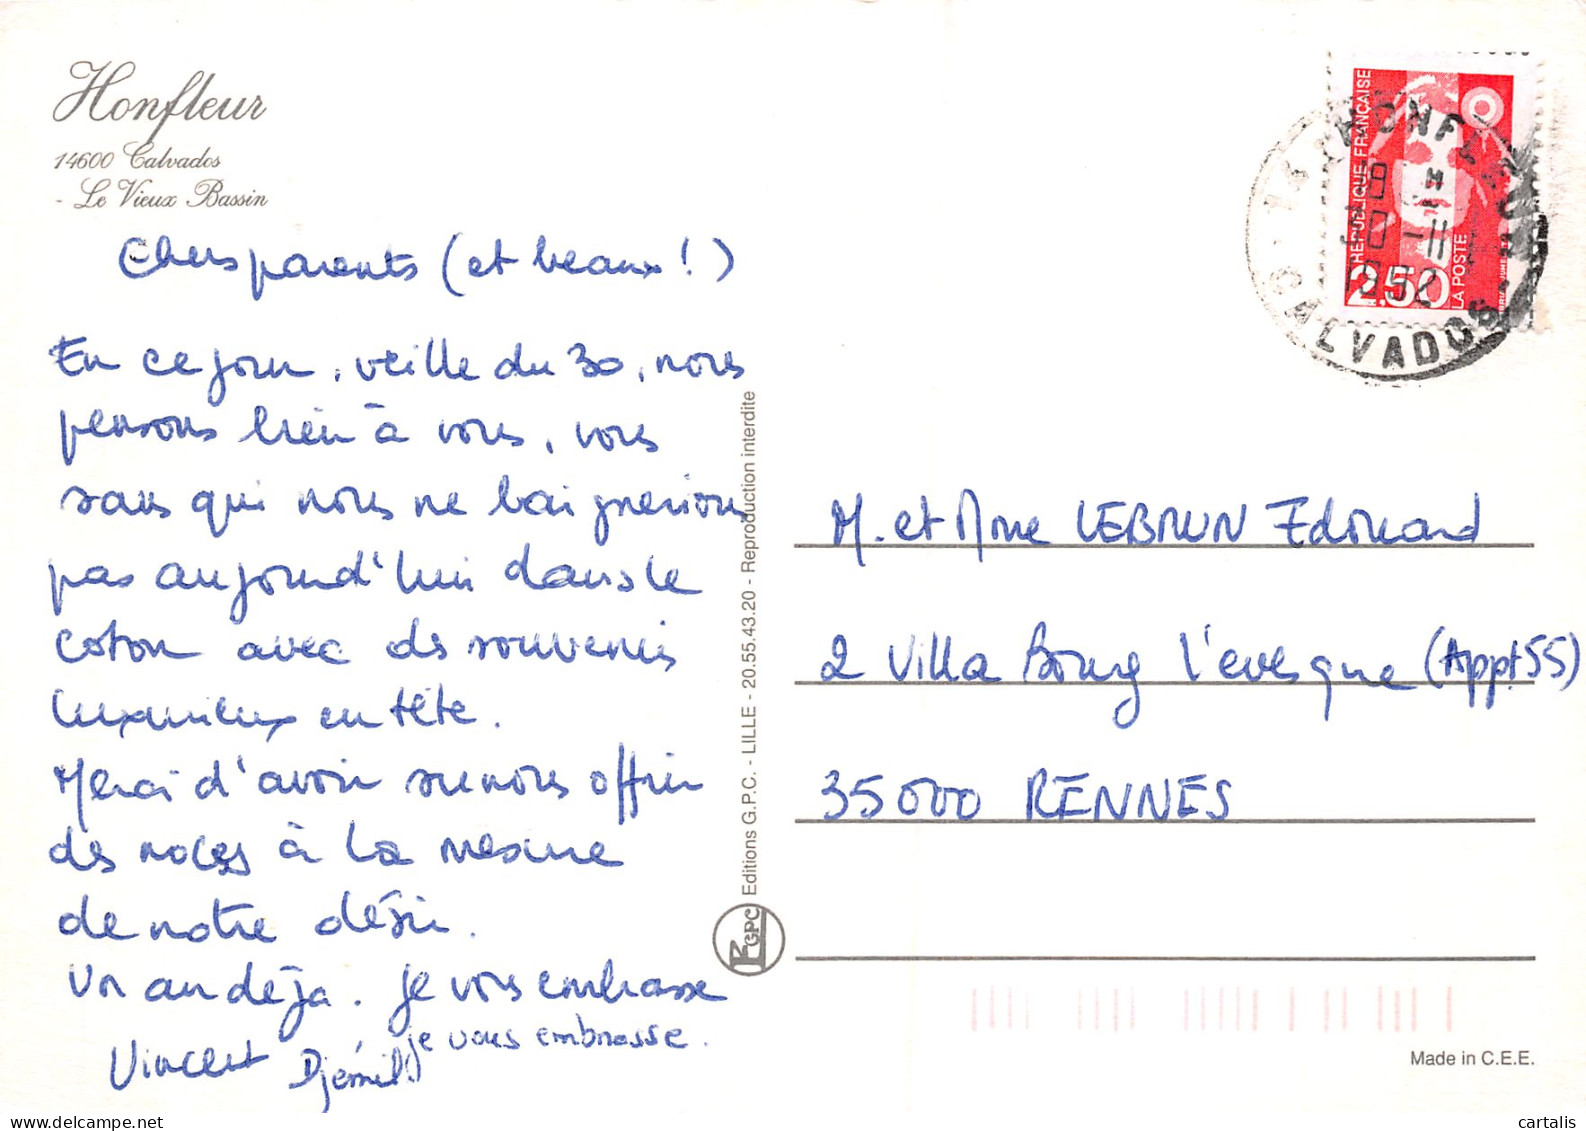 Honfleur
14600 Calvados
- Le Vieux Bassin
Chers parents (et beaux !)
En ce jour, veille du 30, nous
pensons bien à vous, vous
sans qui nous ne baignerions
pas aujourd'hui dans le
coton avec des souvenirs
luxurieux en tête.
Merci d'avoir su nous offrir
des noces à la mesure
de notre désir.
Un an déjà. Je vous embrasse
je vous embrasse.
Vincent Djémila
Editions G.P.C. - LILLE - 20.55.43.20 - Reproduction interdite
GPC
RÉPUBLIQUE FRANÇAISE
2,50
LA POSTE
14 HONFLEUR
CALVADOS
M. et Mme LEBRUN Edouard
2 Villa Bourg l'evesque (Appt 55)
35000 RENNES
Made in C.E.E.
cartalis